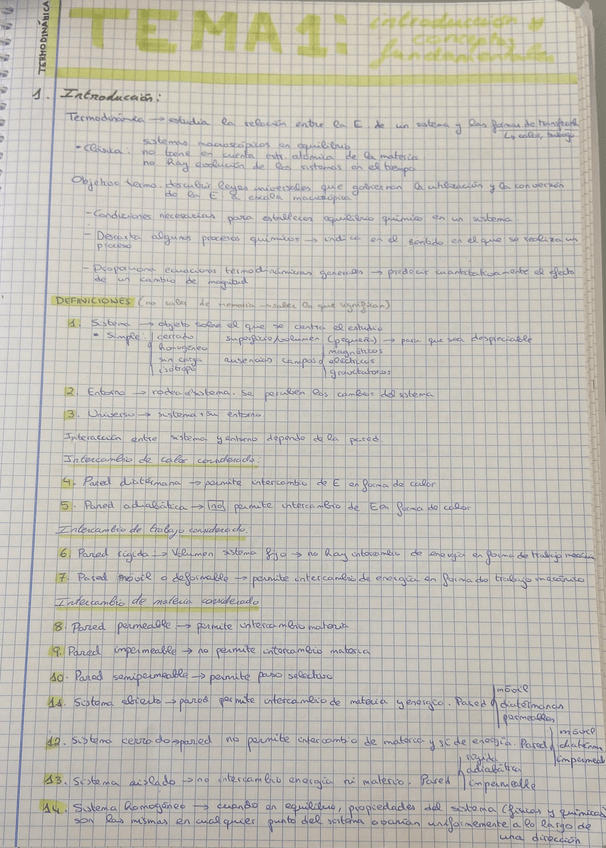 TERMODINÁMICA
TEMA 1: introducción y conceptos fundamentales
1. Introducción:
Termodinámica → estudia la relación entre la E de un sistema y las formas de transferir
↳ calor, trabajo
sistemas macroscópicos en equilibrio
• Clásica: no tiene en cuenta estr. atómica de la materia
no hay evolución de los sistemas en el tiempo
Objetivo termo. descubrir leyes universales que gobiernan la utilización y la conversión
de la E a escala macroscópica
- Condiciones necesarias para establecer equilibrio químico en un sistema
- Descarta algunos procesos químicos → indica en el sentido en el que se realiza un
proceso
- Proporciona ecuaciones termodinámicas generales → predecir cuantitativamente el efecto
de un cambio de magnitud
DEFINICIONES (no saber de memoria → saber lo que significan)
1. Sistema → objeto sobre el que se centra el estudio
• Simple: cerrado superficie/volumen (pequeña) → para que sea despreciable
homogéneo magnéticos
sin carga ausencias campos eléctricos
isótropo gravitatorios
2. Entorno → rodea sistema. Se perciben los cambios del sistema
3. Universo → sistema + su entorno
Interacción entre sistema y entorno depende de la pared.
Intercambio de calor considerado:
4. Pared diatérmana → permite intercambio de E en forma de calor
5. Pared adiabática → no permite intercambio de E en forma de calor
Intercambio de trabajo considerado:
6. Pared rígida → Volumen sistema fijo → no hay intercambio de energía en forma de trabajo mecánico
7. Pared móvil o deformable → permite intercambio de energía en forma de trabajo mecánico
Intercambio de materia considerado
8. Pared permeable → permite intercambio materia
9. Pared impermeable → no permite intercambio materia
10. Pared semipermeable → permite paso selectivo
móvil
11. Sistema abierto → pared permite intercambio de materia y energía. Pared diatérmana
permeable
móvil
12. Sistema cerrado → pared no permite intercambio de materia y sí de energía. Pared diatérma
impermeab
rígida
adiabática
13. Sistema aislado → no intercambio energía ni materia. Pared impermeable
14. Sistema homogéneo → cuando en equilibrio, propiedades del sistema (físicas y químicas)
son las mismas en cualquier punto del sistema o varían uniformemente a lo largo de
una dirección